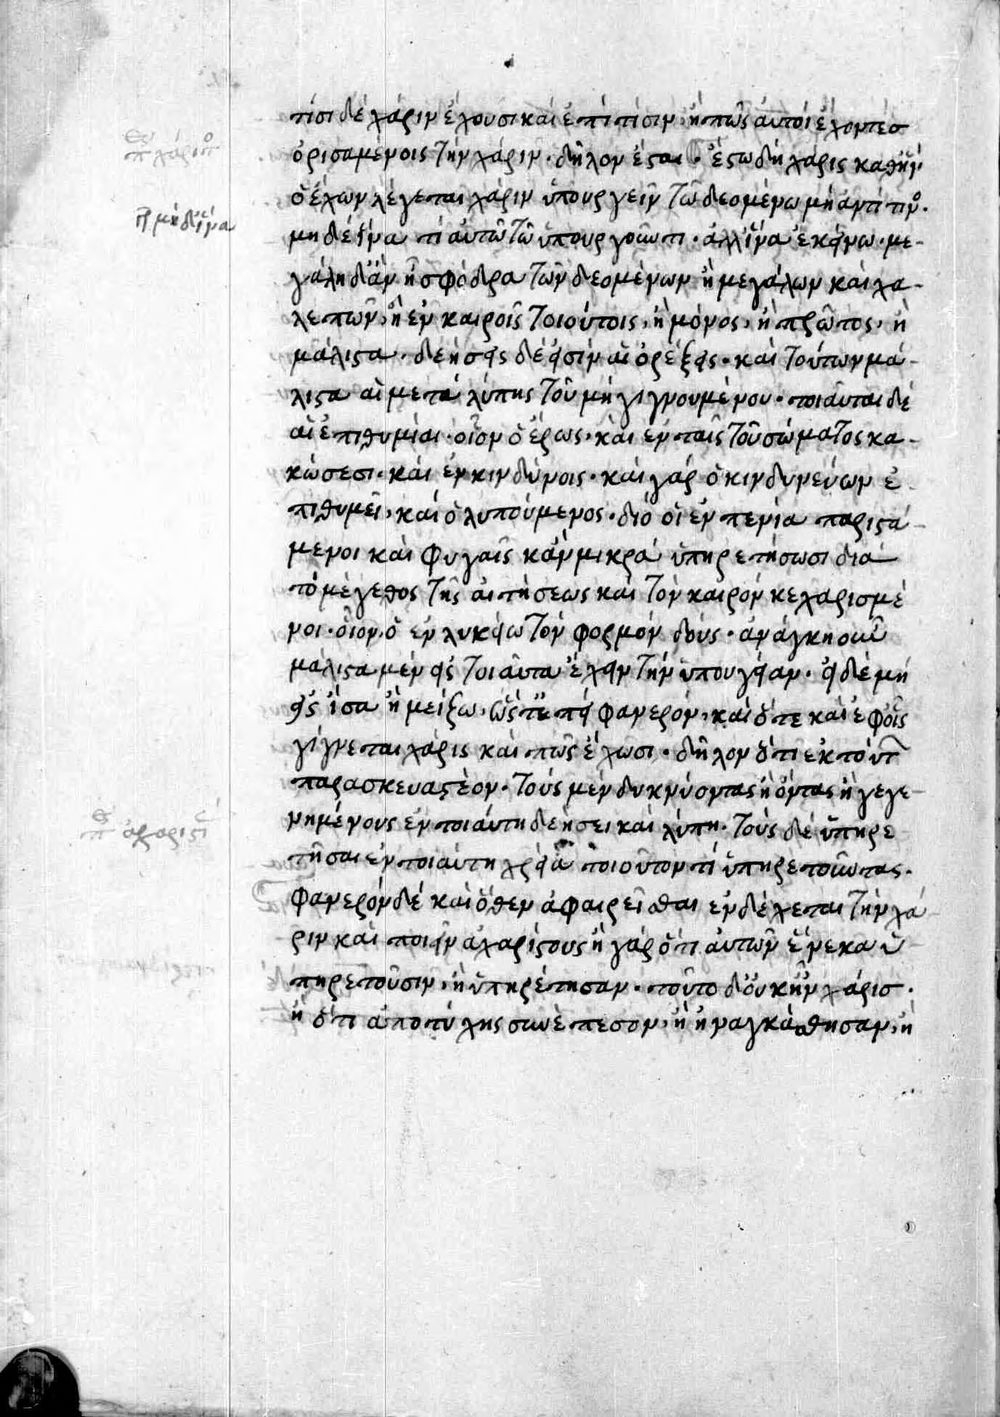 τίσι δὲ χάριν ἔχουσι καὶ ἐπὶ τίσιν, ἢ πῶς αὐτοὶ ἔχοντες
ὁρισαμένοις τὴν χάριν. δῆλον ἔσται. ἔστω δὴ χάρις καθ' ἣν
ὁ ἔχων λέγεται χάριν ὑπουργεῖν τῶ δεομένω μὴ ἀντί τινος.
μὴ δὲ ἵνα
μηδὲ ἵνα τί αὐτῶ τῶ ὑπουργοῦντι. ἀλλ' ἵνα ἐκείνω. με-
γάλη δ' ἂν ἦ σφόδρα τῶν δεομένων ἢ μεγάλων καὶ χα-
λεπῶν, ἢ ἐν καιροῖς τοιούτοις, ἢ μόνος, ἢ πρῶτος, ἢ
μάλιστα. δεήσεις δέ εἰσιν αἱ ὀρέξεις. καὶ τούτων μά-
λιστα αἱ μετὰ λύπης τοῦ μὴ γιγνουμένου. τοιαῦται δὲ
αἱ ἐπιθυμίαι. οἷον ὁ ἔρως. καὶ ἐν ταῖς τοῦ σώματος κα-
κώσεσι. καὶ ἐν κινδύνοις. καὶ γὰρ ὁ κινδυνεύων ἐ
πιθυμεῖ, καὶ ὁ λυπούμενος. διὸ οἱ ἐν πενία παριστά-
μενοι καὶ φυγαῖς κἂν μικρὰ ὑπηρετήσωσι διὰ
τὸ μέγεθος τῆς αἰτήσεως καὶ τὸν καιρὸν κεχαρισμέ
νοι. οἷον ὁ ἐν λυκείω τὸν φορμὸν δούς. ἀνάγκη οὖν
μάλιστα μὲν εἰς τοιαῦτα ἔχειν τὴν ὑπουγείαν. εἰ δὲ μὴ
εἰς ἴσα ἢ μείζω, ὥστε ἐπεὶ φανερόν, καὶ ὅτε καὶ ἐφ' οἷς
γίγνεται χάρις καὶ πῶς ἔχωσι. δῆλον ὅτι ἐκ τούτων
παρασκευαστέον. τοὺς μὲν δεικνύοντας ἢ ὄντας ἢ γεγε-
νημένους ἐν τοιαύτη δεήσει καὶ λύπη. τοὺς δὲ ὑπηρε
τῆσαι ἐν τοιαύτη χρεία τοιοῦτόν τι ὑπηρετοῦντας.
φανερὸν δὲ καὶ ὅθεν ἀφαιρεῖσθαι ἐνδέχεται τὴν χά-
ριν καὶ ποιεῖν ἀχαρίστους ἢ γὰρ ὅτι αὐτῶν ἕνεκα ὑ
πηρετοῦσιν, ἢ ὑπηρέτησαν. τοῦτο δ' οὐκ ἦν χάρις.
ἢ ὅτι ἀπὸ τύχης συνέπεσον, ἢ ἠναγκάσθησαν, ἢ